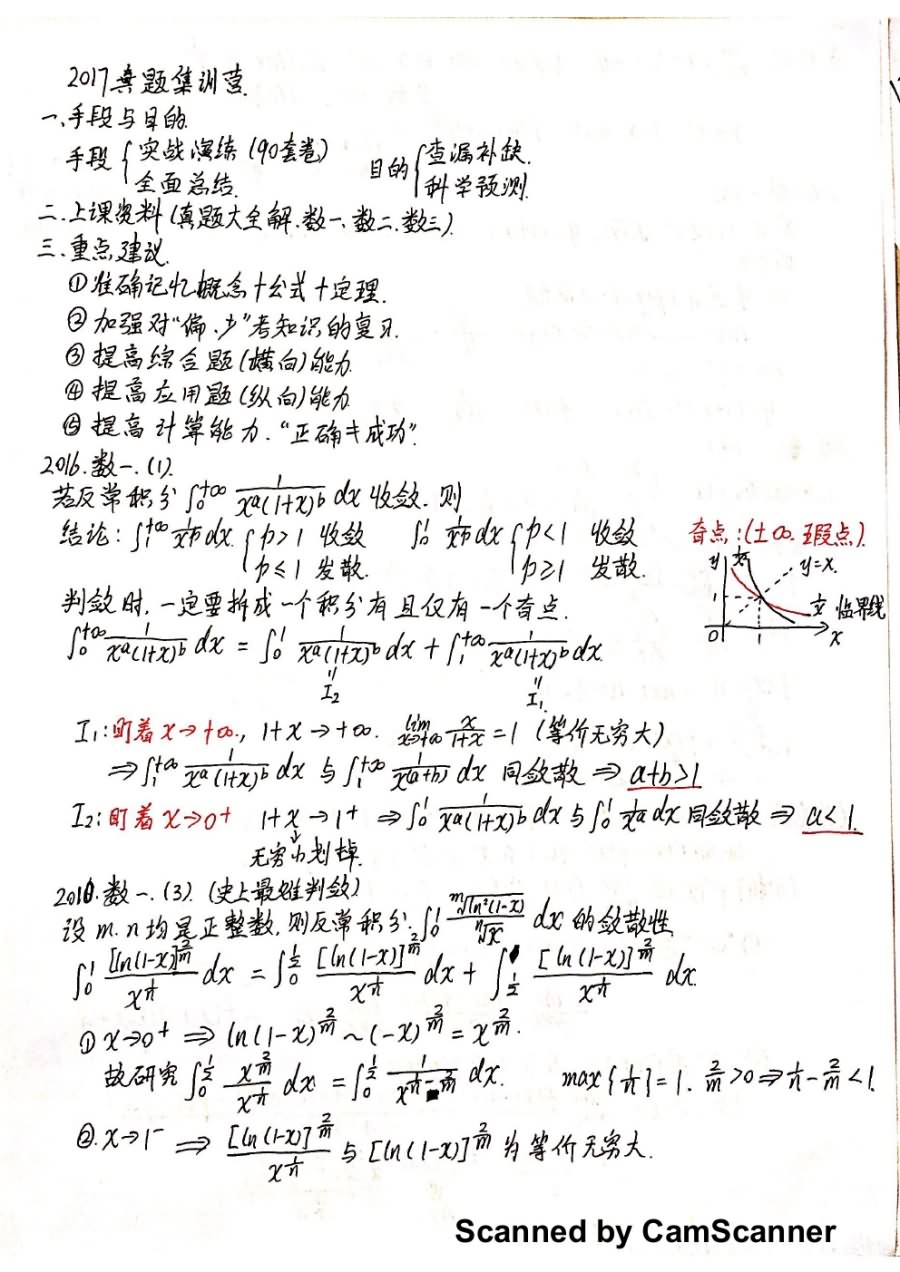 2017真题集训营.
一.手段与目的.
手段 { 实战演练 (90套卷) 全面总结. 目的 { 查漏补缺. 科学预测.
二.上课资料 (真题大全解.数一.数二.数三).
三.重点建议.
① 准确记忆概念+公式+定理.
② 加强对"偏、少"考知识的复习.
③ 提高综合题(横向)能力.
④ 提高应用题(纵向)能力
⑤ 提高计算能力. "正确≠成功".
2016.数一.(1).
若反常积分 ∫₀^{+∞} 1/(x^a(1+x)^b) dx 收敛.则
结论: ∫₁^{+∞} 1/x^p dx. { p>1 收敛 p≤1 发散. ∫₀^1 1/x^p dx { p<1 收敛 p≥1 发散. 奇点:(±∞.瑕点).
y y=x. 1 O 1 x 临界线
判敛时,一定要拆成一个积分有且仅有一个奇点.
∫₀^{+∞} 1/(x^a(1+x)^b) dx = ∫₀^1 1/(x^a(1+x)^b) dx + ∫₁^{+∞} 1/(x^a(1+x)^b) dx.
I₂ I₁.
I₁: 盯着 x→+∞., 1+x→+∞. lim_{x→+∞} x/(1+x) = 1 (等价无穷大)
⇒ ∫₁^{+∞} 1/(x^a(1+x)^b) dx 与 ∫₁^{+∞} 1/x^(a+b) dx 同敛散 ⇒ a+b>1
I₂: 盯着 x→0⁺ 1+x→1⁺ ⇒ ∫₀^1 1/(x^a(1+x)^b) dx 与 ∫₀^1 1/x^a dx 同敛散 ⇒ a<1.
无穷小划掉.
2010.数一.(3). (史上最难判敛)
设 m.n均是正整数,则反常积分. ∫₀^1 ᵐ√(ln²(1-x))/ⁿ√x dx 的敛散性
∫₀^1 [ln(1-x)]^{2/m}/x^{1/n} dx = ∫₀^{1/2} [ln(1-x)]^{2/m}/x^{1/n} dx + ∫_{1/2}^1 [ln(1-x)]^{2/m}/x^{1/n} dx.
① x→0⁺ ⇒ ln(1-x)^{2/m} ~ (-x)^{2/m} = x^{2/m}.
故研究 ∫₀^{1/2} x^{2/m}/x^{1/n} dx. = ∫₀^{1/2} 1/x^{1/n-2/m} dx. max{1/n} = 1. 2/m>0 ⇒ 1/n-2/m<1.
②. x→1⁻ ⇒ [ln(1-x)]^{2/m}/x^{1/n} 与 [ln(1-x)]^{2/m} 为等价无穷大.
Scanned by CamScanner